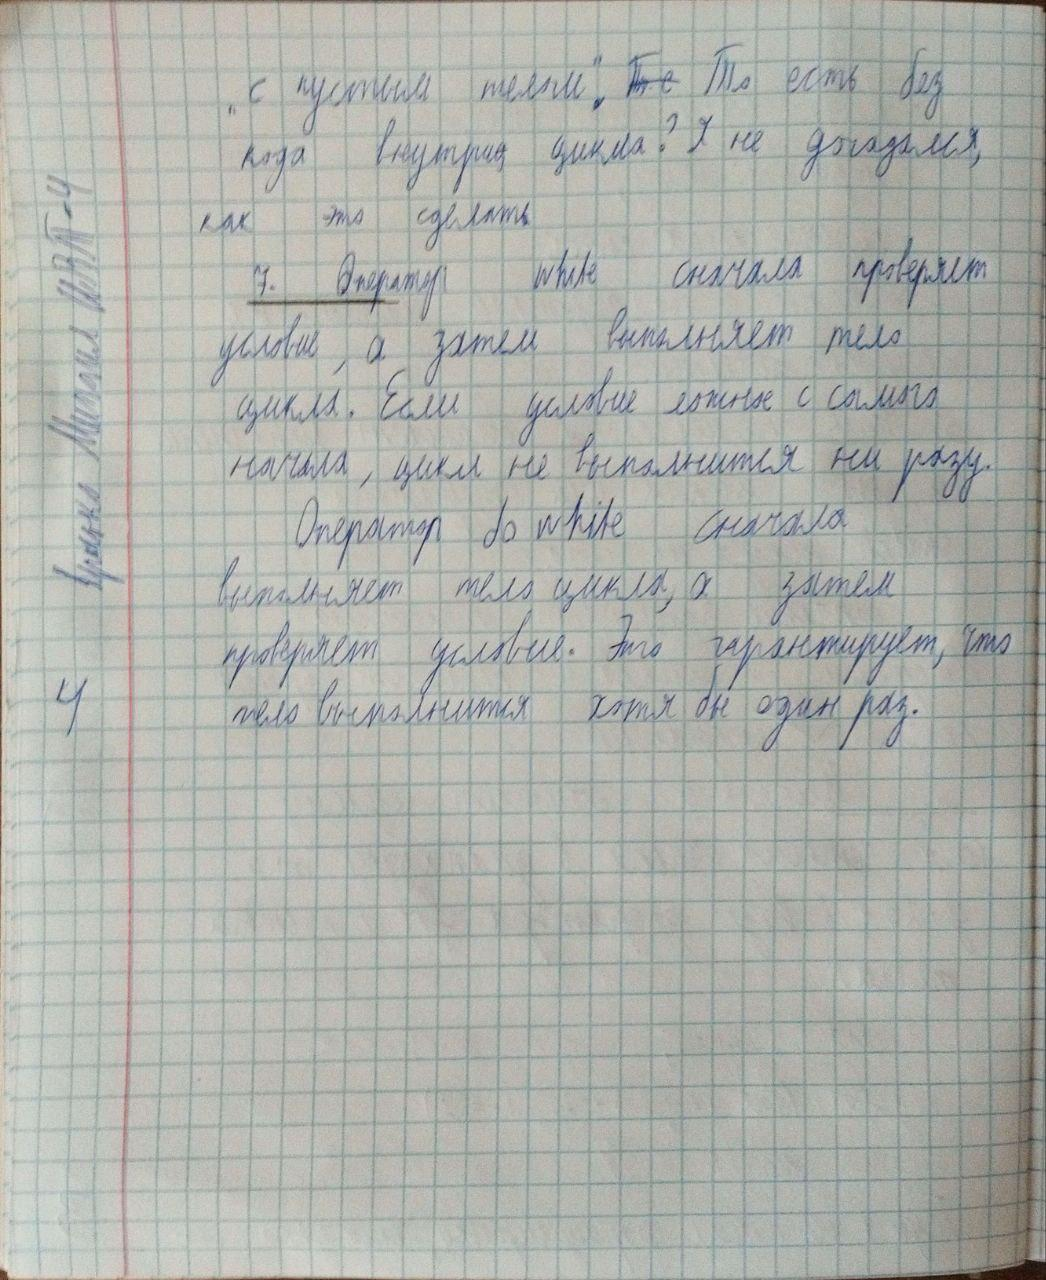 „с пустым телом". То есть без
кода внутри цикла? Я не догадался,
как это сделать
7. Оператор while сначала проверяет
условие, а затем выполняет тело
цикла. Если условие ложное с самого
начала, цикл не выполнится ни разу.
Оператор do while сначала
выполняет тело цикла, а затем
проверяет условие. Это гарантирует, что
тело выполнится хотя бы один раз.
Михаил
4